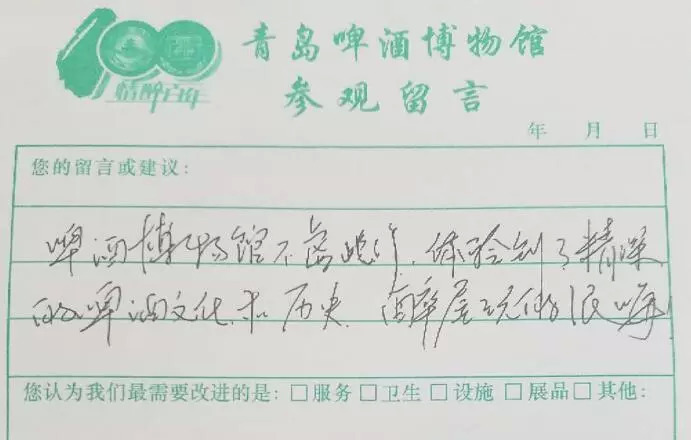 100
情醉百年
青岛啤酒博物馆
参观留言
年 月 日
您的留言或建议:
啤酒博物馆不虚此行,体验到了精深
的啤酒文化和历史,
您认为我们最需要改进的是: □服务 □卫生 □设施 □展品 □其他: